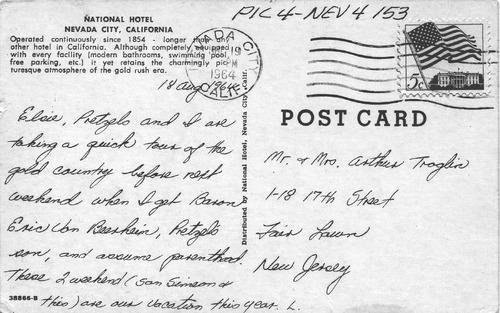 PIC 4-NEV 4 153
NATIONAL HOTEL
NEVADA CITY, CALIFORNIA
Operated continuously since 1854 - longer than any
other hotel in California. Although completely equipped
with every facility (modern bathrooms, swimming pool,
free parking, etc.) it yet retains the charmingly pic-
turesque atmosphere of the gold rush era.
18 aug 1964
Elsie, Pretzels and I are
taking a quick tour of the
gold country before next
weekend when I get Baron
Eric Von Beersheim, Pretzels
son, and assume parenthood.
These 2 weekend (San Simeon &
this) are our vacation this year. L.
38866-B
Distributed by National Hotel, Nevada City, Calif.
NEVADA CITY
19
PM
1964
CALIF.
5c
POST CARD
Mr. & Mrs. Arthur Troglin
1-18 17th Street
Fair Lawn
New Jersey